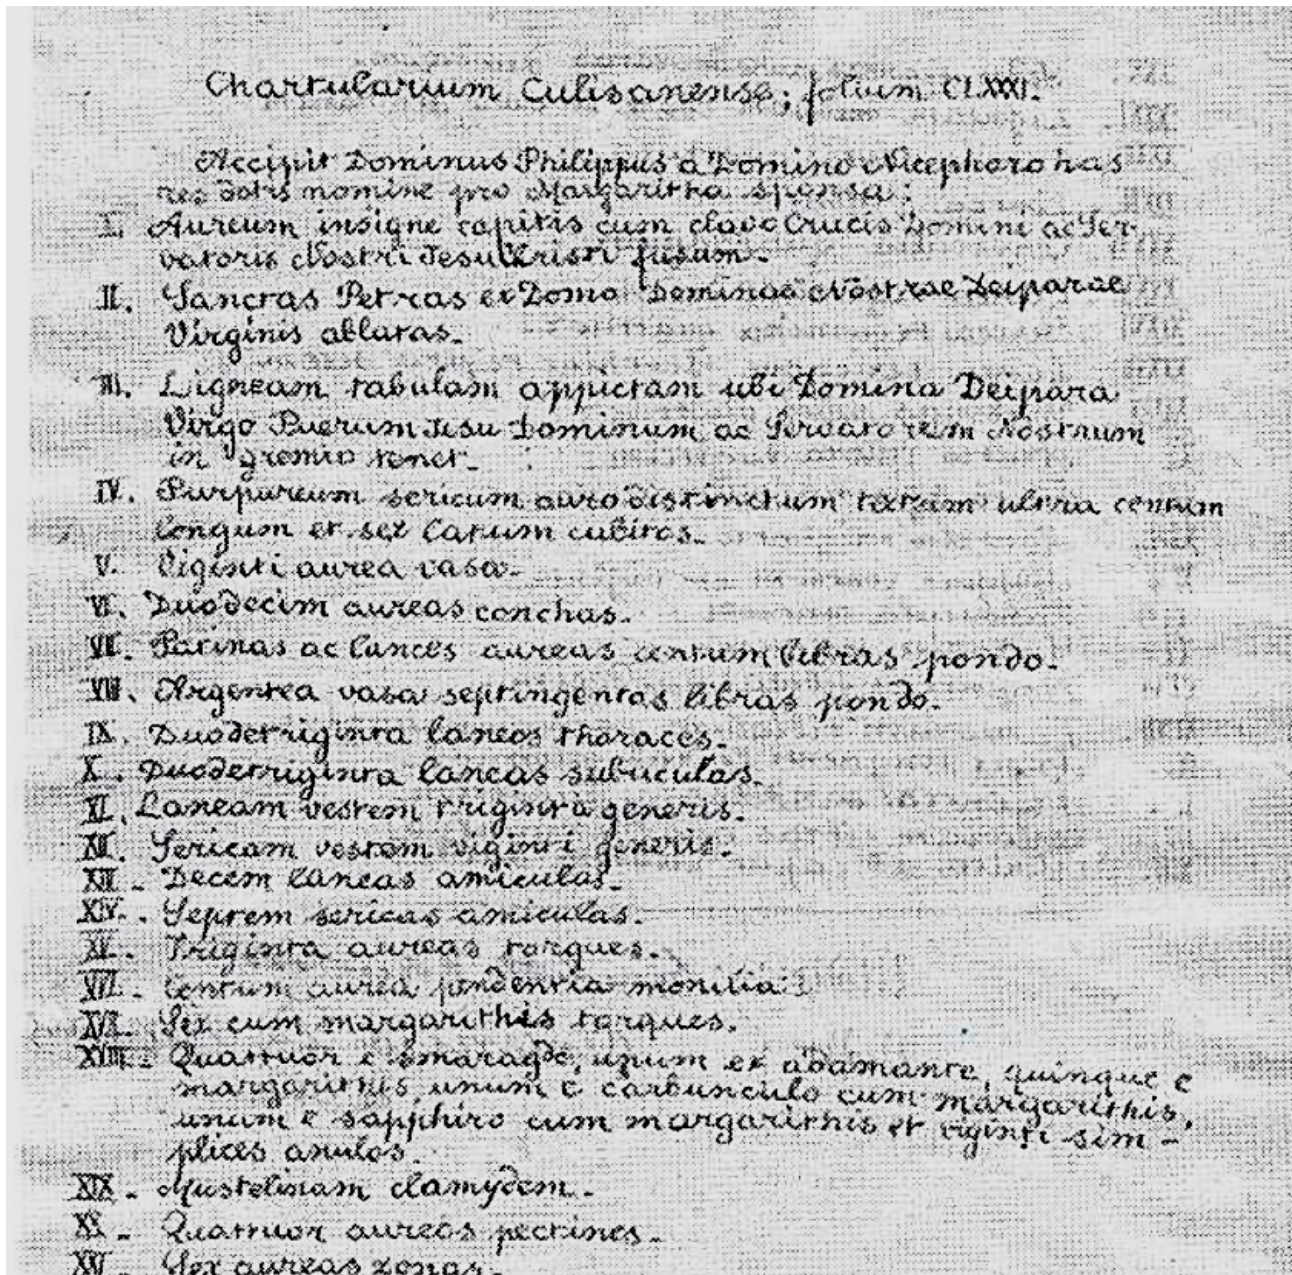 Chartularium Culisanense; folium CLXXXI.
Accipit Dominus Philippus a Domino Nicephoro has
res dotis nomine pro Margaritha sponsa:
I. Aureum insigne capitis cum clavo Crucis Domini ac Ser-
vatoris Nostri Jesu Kristi fusum.
II. Sanctas Petras ex Domo Dominae Nostrae Deiparae
Virginis ablatas.
III. Ligneam tabulam appictam ubi Domina Deipara
Virgo Puerum Jesu Dominum ac Servatorem Nostrum
in gremio tenet.
IV. Purpureum sericum auro distinctum ultra centum
longum et sex latum cubitos.
V. Viginti aurea vasa.
VI. Duodecim aureas conchas.
VII. Patinas ac lances aureas centum libras pondo.
VIII. Argentea vasa septingentas libras pondo.
IX. Duodetriginta laneos thoraces.
X. Duodetriginta laneas subuculas.
XI. Laneam vestem triginta generis.
XII. Sericam vestem viginti generis.
XIII - Decem laneas amiculas.
XIV. - Septem sericas amiculas.
XV. - Triginta aureas torques.
XVI. - Centum aurea pendentia monilia
XVII. - Sex cum margarithis torques.
XVIII - Quattuor e smaragdo, unum ex adamante, quinque e
margarithis, unum e carbunculo cum margarithis,
unum e sapphiro cum margarithis et viginti sim-
plices anulos.
XIX - Mustelinam clamydem.
XX - Quattuor aureos pectines.
XXI - Sex aureas zonas.